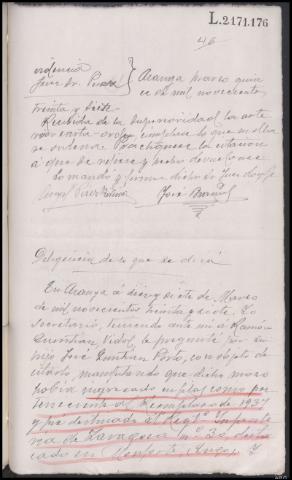 L.2171.176
46
Providencia
Juez Sr.
Aranga marzo quin
ce de mil novecientos
treinta y siete
Recibida de la superioridad la ante
rior carta-orden, cúmplase lo que en ella
se ordena. Practíquese la citación
á que se refiere y hecho devuélvase
Lo mandó y firma dicho Sr. Juez doy fe
José
Diligencia de lo que se dirá
En Aranga á diez y siete de Marzo
de mil novecientos treinta y siete. Yo
secretario, teniendo ante mi á Ramon
Vidal, le pregunté por su
hijo José Porto, con objeto de
citarlo, manifestando que dicho mozo
había ingresado en filas como per
teneciente al Reemplazo de 1937
y fue destinado al Regto. Infante
ria de Zaragoza nº 30, desta
cado en Monforte